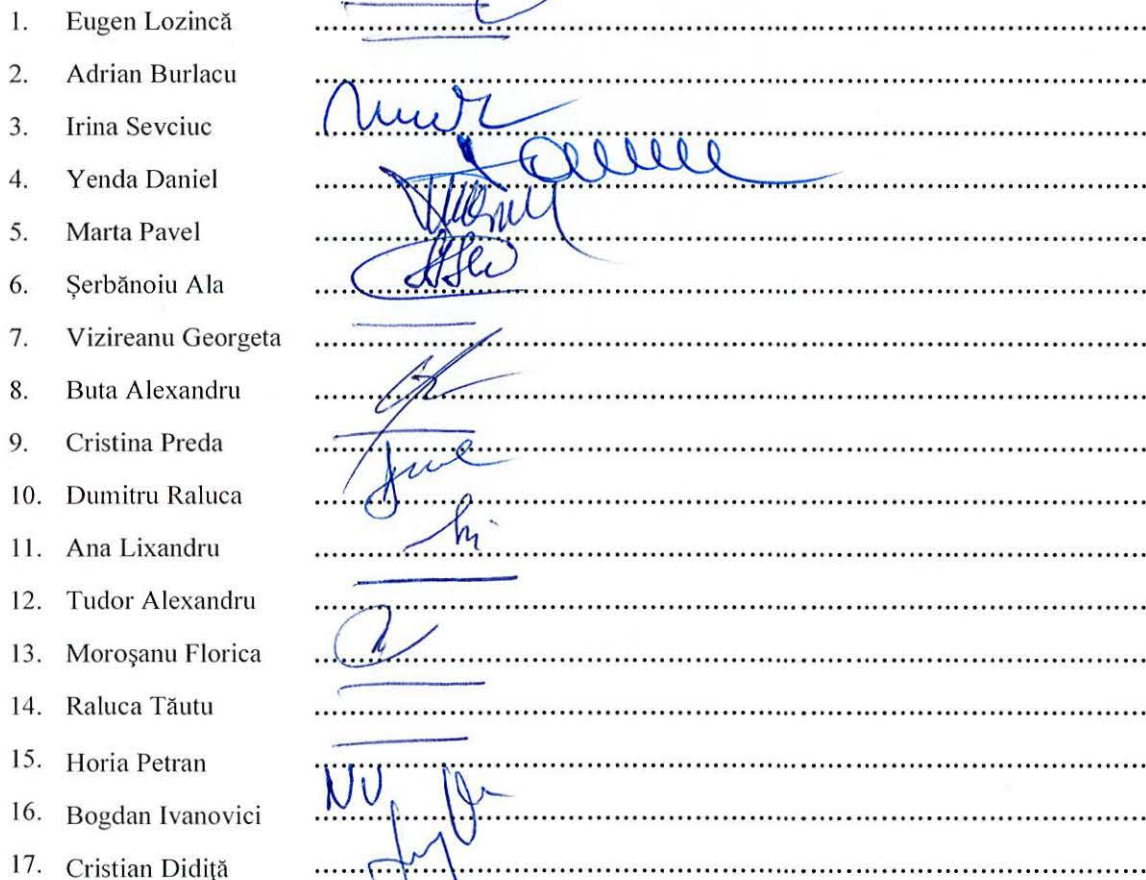 1. Eugen Lozincă
2. Adrian Burlacu
3. Irina Sevciuc
4. Yenda Daniel
5. Marta Pavel
6. Șerbănoiu Ala
7. Vizireanu Georgeta
8. Buta Alexandru
9. Cristina Preda
10. Dumitru Raluca
11. Ana Lixandru
12. Tudor Alexandru
13. Moroşanu Florica
14. Raluca Tăutu
15. Horia Petran
NU
16. Bogdan Ivanovici
17. Cristian Didiţă